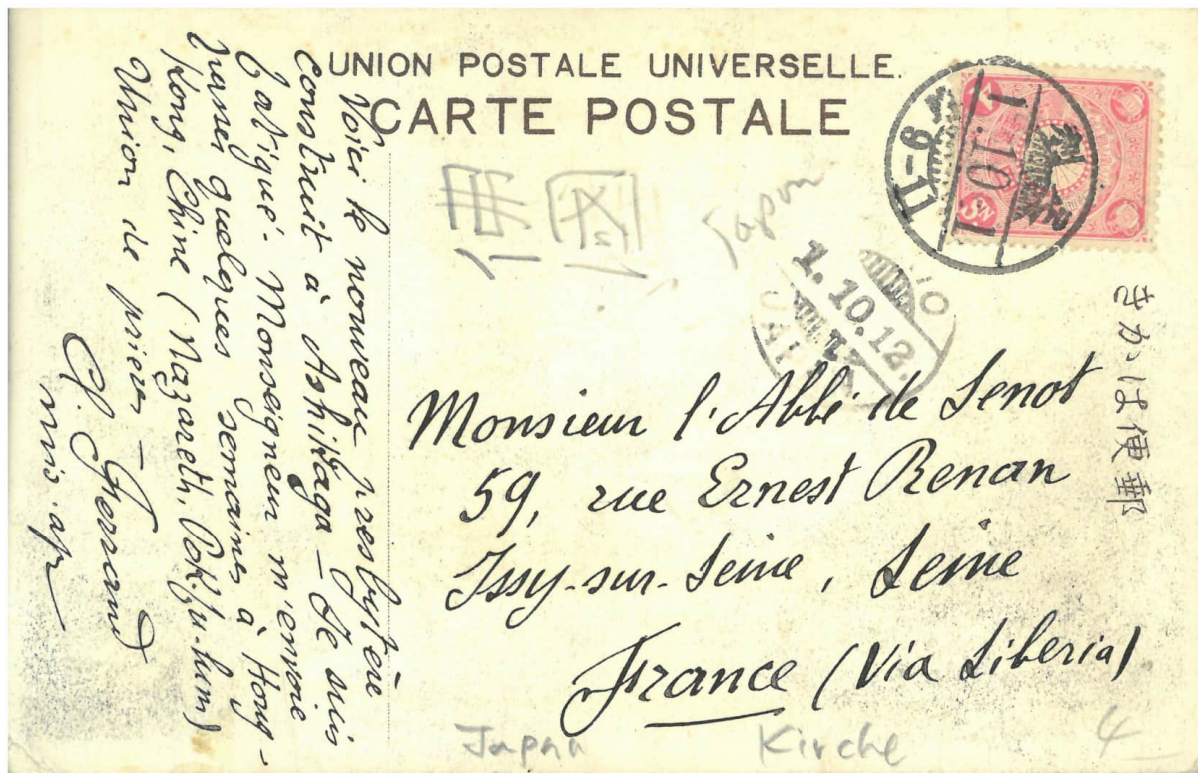 UNION POSTALE UNIVERSELLE.
CARTE POSTALE
Voici le nouveau presbytère
construit à Ashikaga – Je suis
fatigué. Monseigneur m'envoie
passer quelques semaines à Hong-
Kong, Chine (Nazareth, Pokfu-lum)
Union de prières –
Cl. Ferrand
mis. ap.
Japan
11-6
1.10.1
1.10.12.
きかは便郵
Monsieur l'Abbé de Senot
59, rue Ernest Renan
Issy-sur-Seine, Seine
France (Via Siberia)
Japan Kirche 4